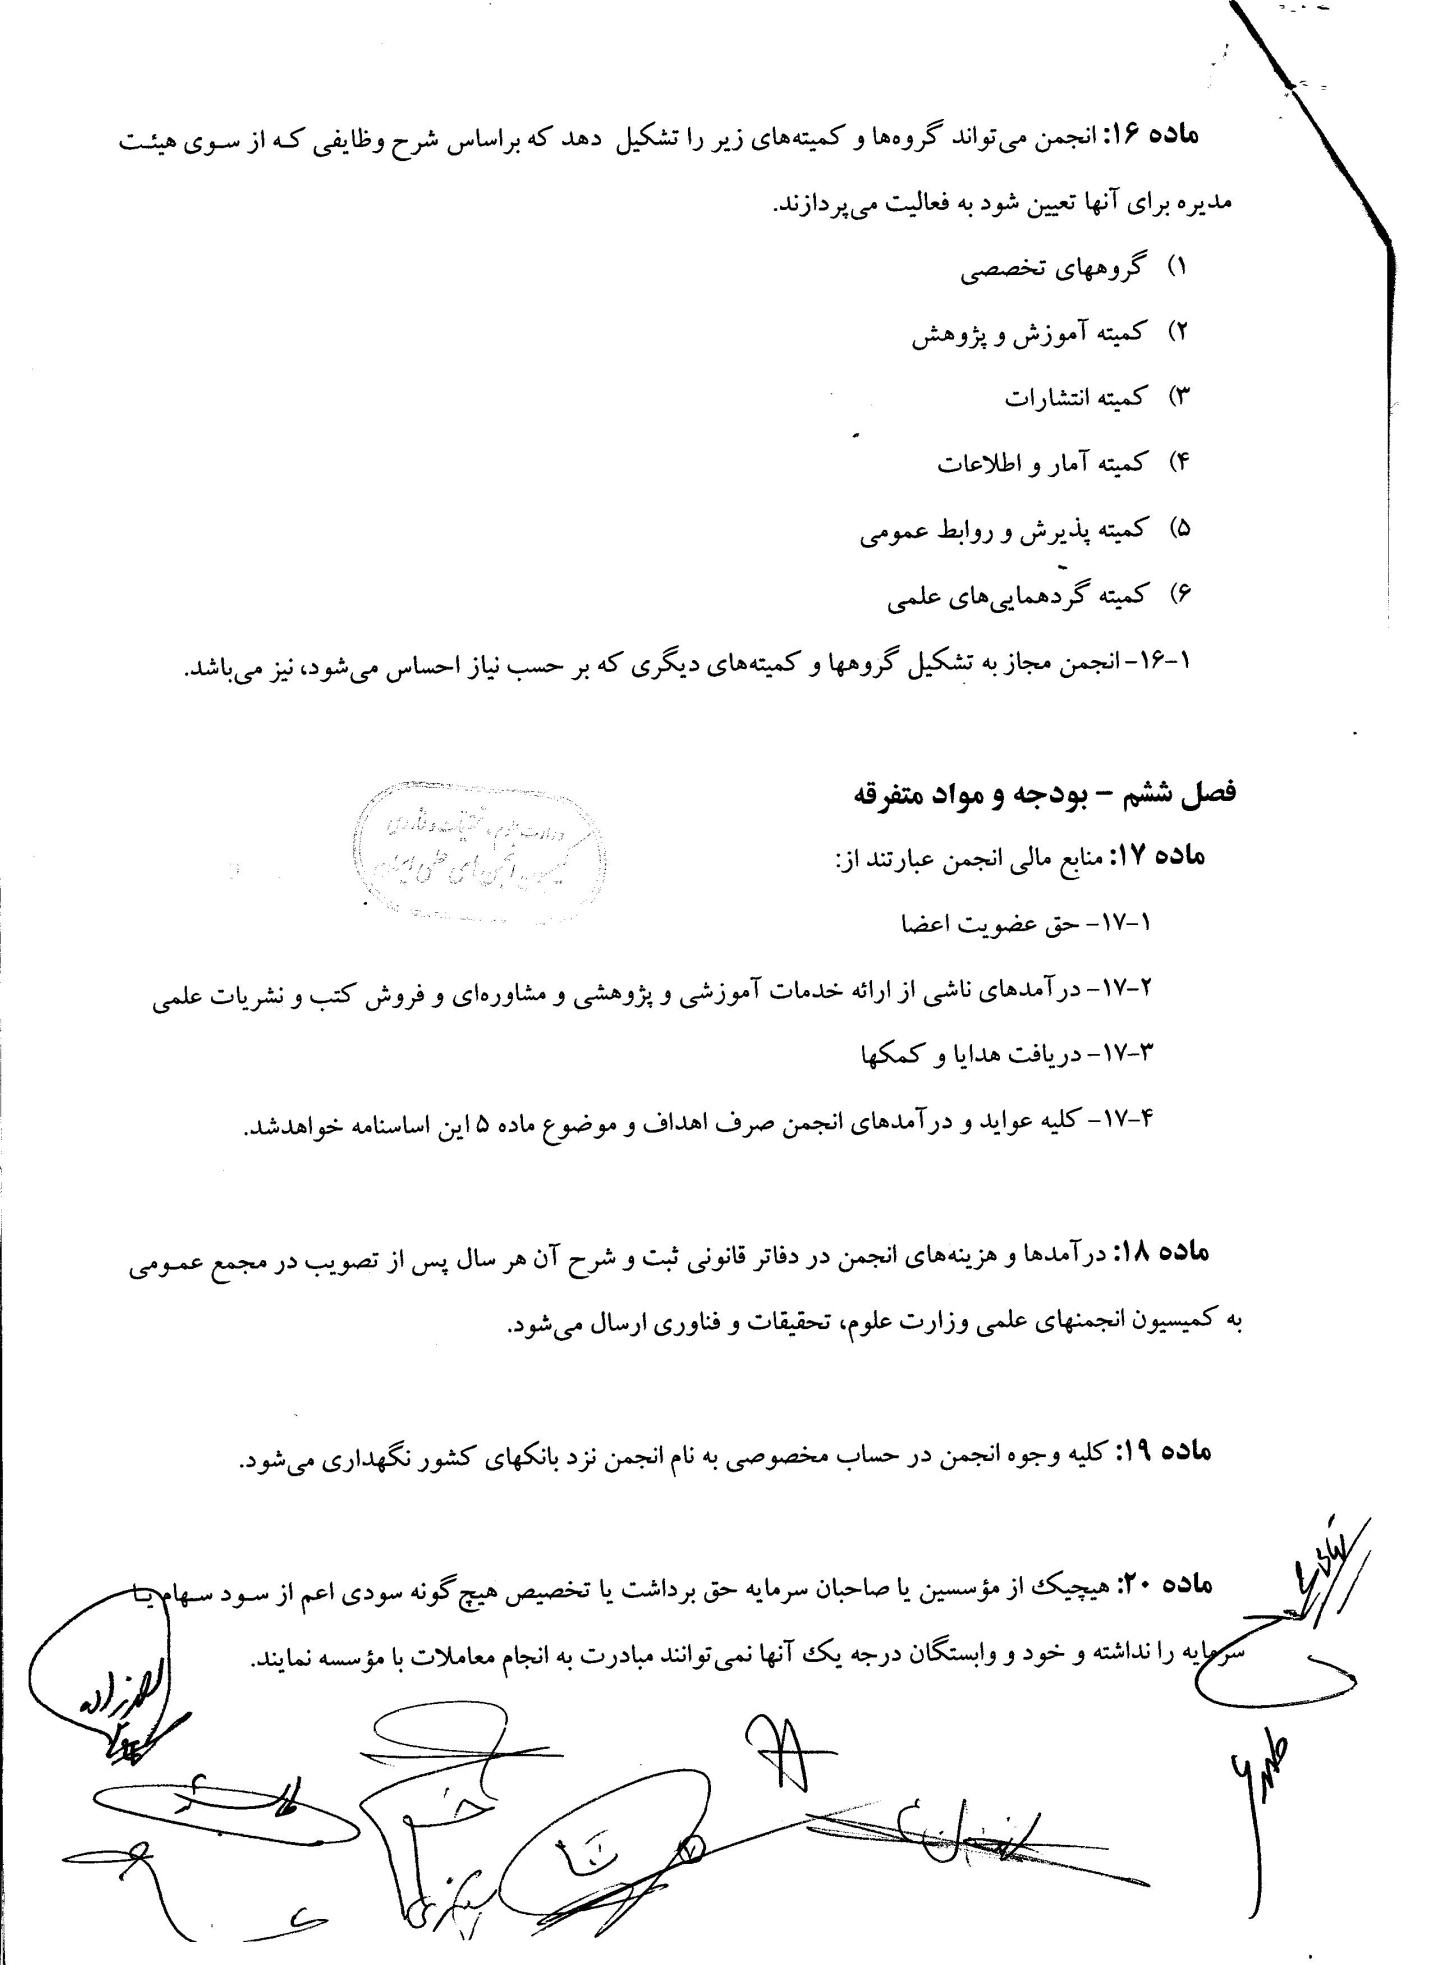 ماده ۱۶: انجمن می‌تواند گروه‌ها و کمیته‌های زیر را تشکیل دهد که براساس شرح وظایفی که از سوی هیئت
مدیره برای آنها تعیین شود به فعالیت می‌پردازند.
۱) گروههای تخصصی
۲) کمیته آموزش و پژوهش
۳) کمیته انتشارات
۴) کمیته آمار و اطلاعات
۵) کمیته پذیرش و روابط عمومی
۶) کمیته گردهمایی‌های علمی
۱۶-۱- انجمن مجاز به تشکیل گروهها و کمیته‌های دیگری که بر حسب نیاز احساس می‌شود، نیز می‌باشد.
فصل ششم – بودجه و مواد متفرقه
ماده ۱۷: منابع مالی انجمن عبارتند از:
۱۷-۱- حق عضویت اعضا
۱۷-۲- درآمدهای ناشی از ارائه خدمات آموزشی و پژوهشی و مشاوره‌ای و فروش کتب و نشریات علمی
۱۷-۳- دریافت هدایا و کمکها
۱۷-۴- کلیه عواید و درآمدهای انجمن صرف اهداف و موضوع ماده ۵ این اساسنامه خواهدشد.
ماده ۱۸: درآمدها و هزینه‌های انجمن در دفاتر قانونی ثبت و شرح آن هر سال پس از تصویب در مجمع عمومی
به کمیسیون انجمنهای علمی وزارت علوم، تحقیقات و فناوری ارسال می‌شود.
ماده ۱۹: کلیه وجوه انجمن در حساب مخصوصی به نام انجمن نزد بانکهای کشور نگهداری می‌شود.
ماده ۲۰: هیچیک از مؤسسین یا صاحبان سرمایه حق برداشت یا تخصیص هیچ گونه سودی اعم از سود سهام یا
سرمایه را نداشته و خود و وابستگان درجه یک آنها نمی‌توانند مبادرت به انجام معاملات با مؤسسه نمایند.
۷